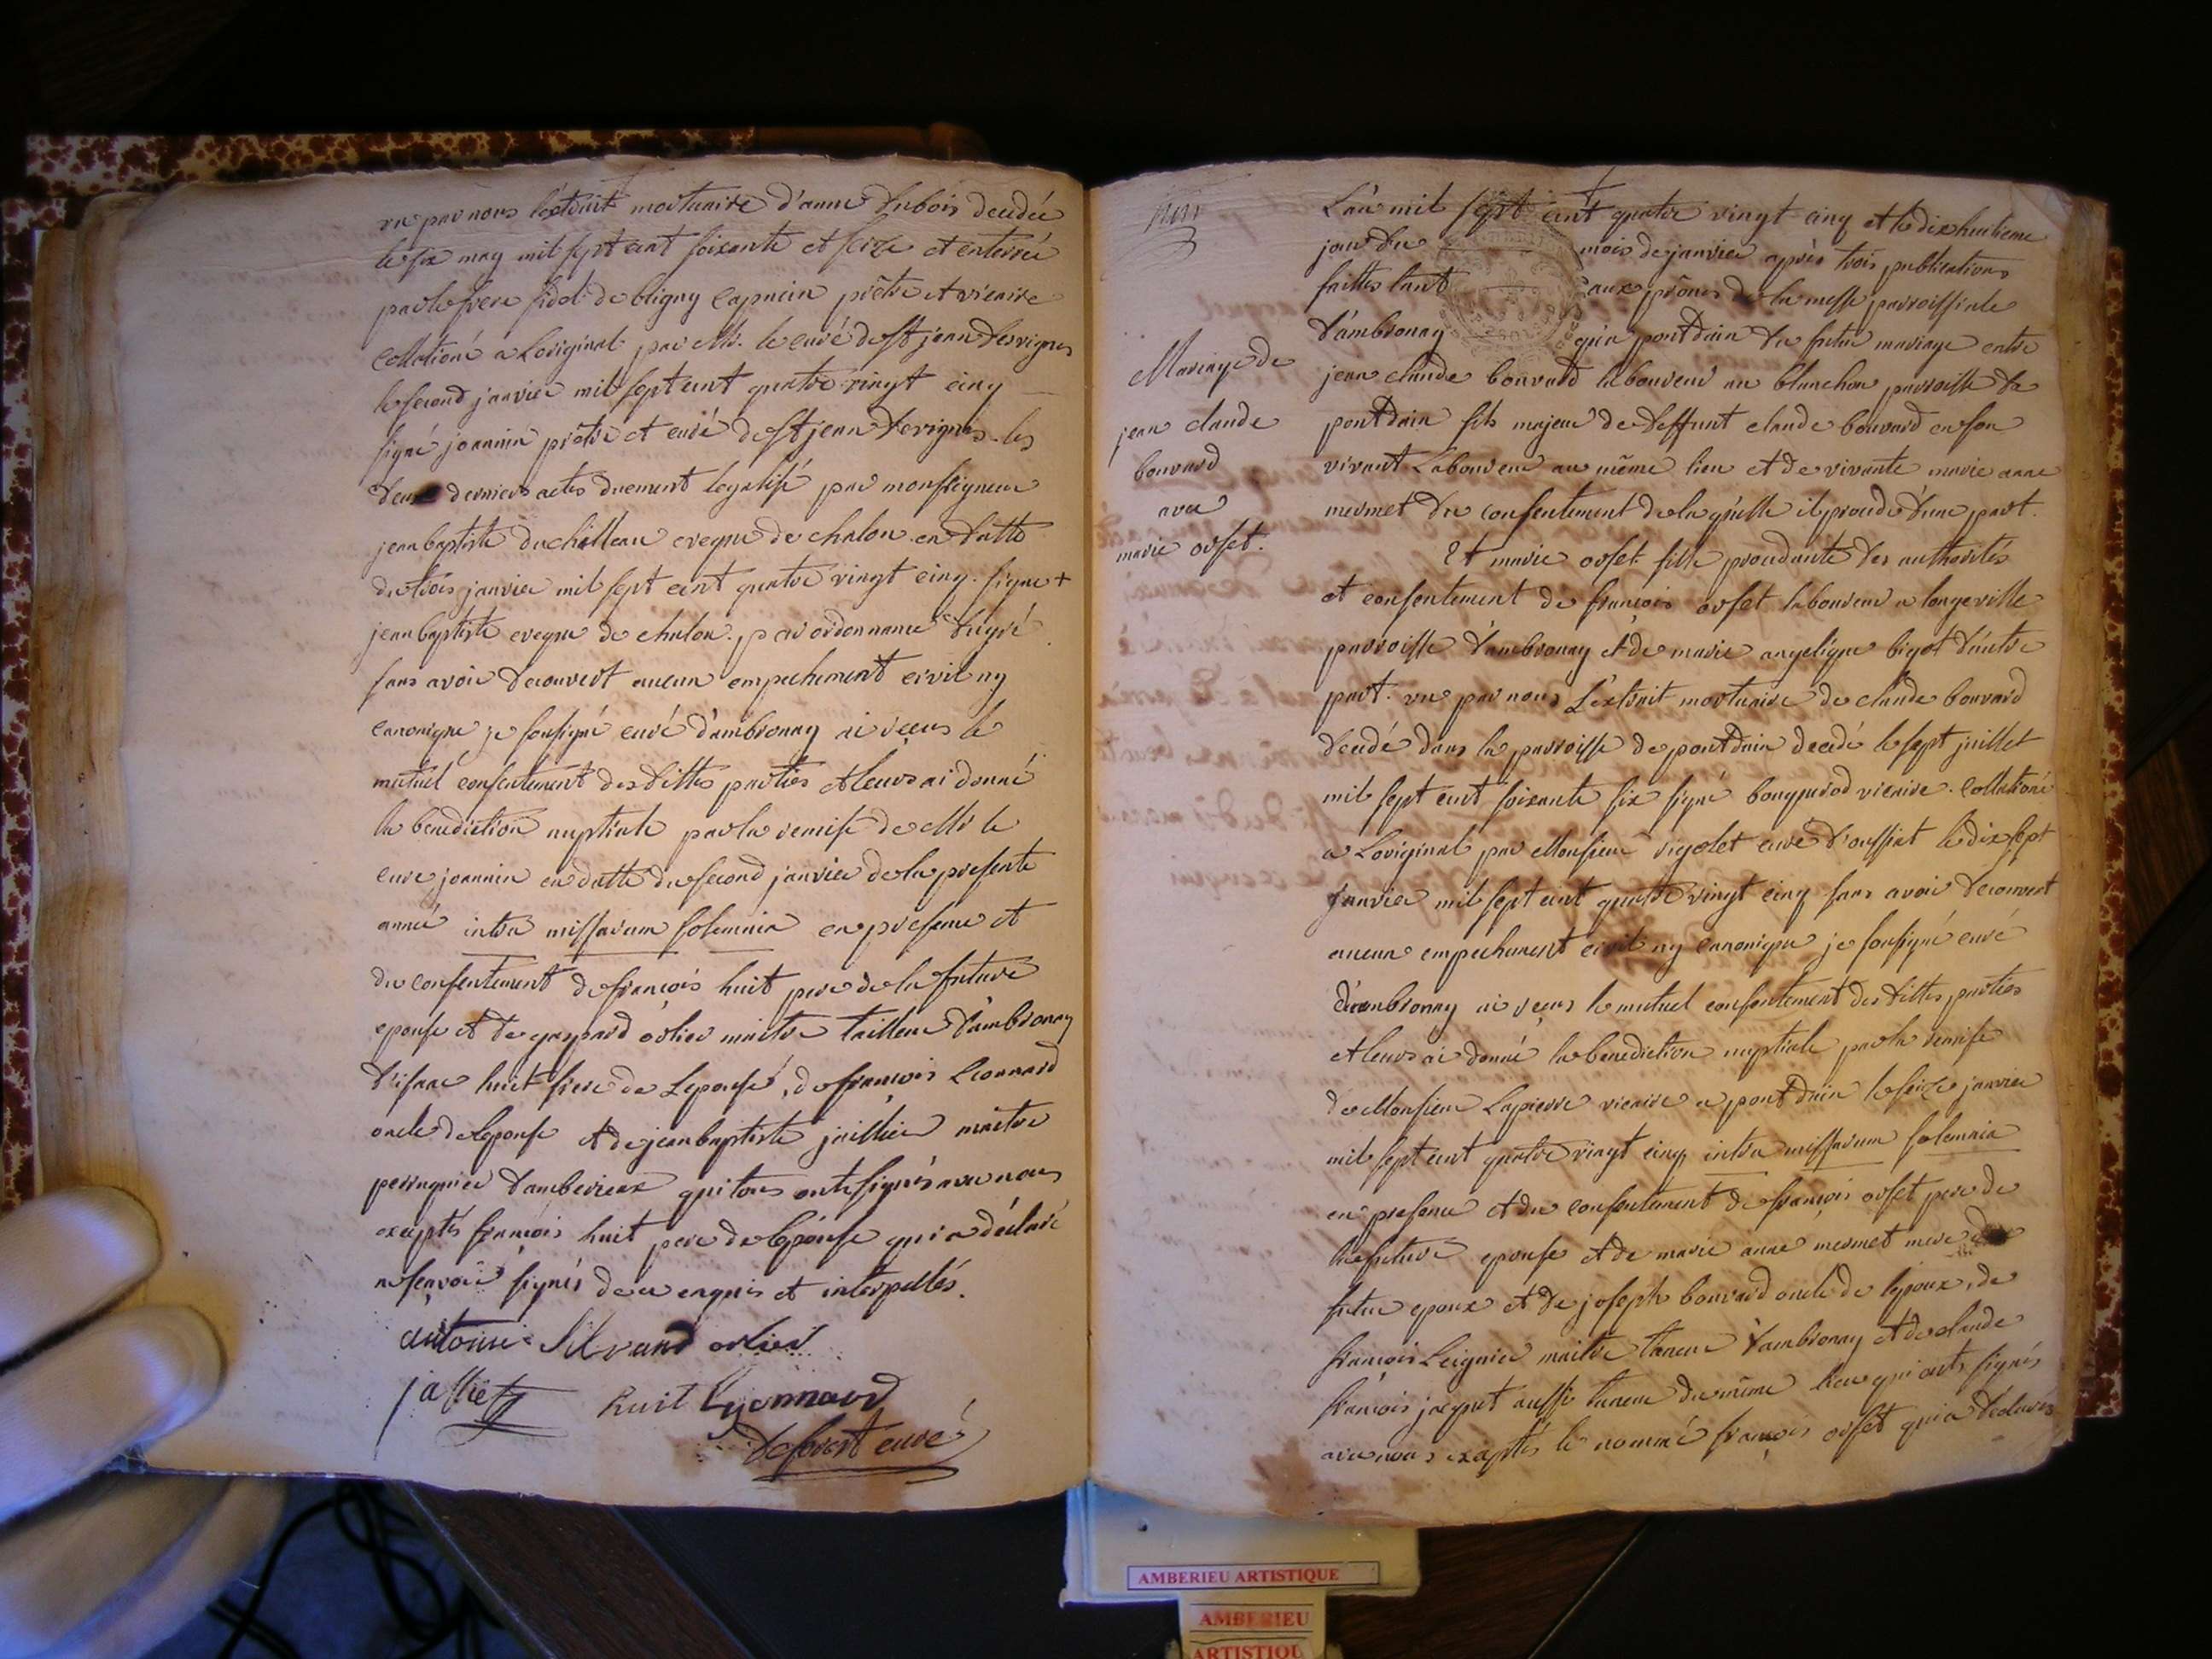 vu par nous l'extrait mortuaire d'anne dubois decedée
le six may mil sept cent soixante et seize et enterrée
par le frere fidel de bligny capucin prêtre et vicaire
collationé a loriginal par Mr. le curé de st jean desvignes
le second janvier mil sept cent quatre vingt cinq
signé joannin prêtre et curé de st jean desvignes. les
deux derniers actes duement legalisé par monseigneur
jean baptiste duchilleau eveque de chalon en datte
du trois janvier mil sept cent quatre vingt cinq. signe +
jean baptiste eveque de chalon. par ordonnance
sans avoir decouvert aucun empechement civil ny
canonique je sousigné curé d'ambronay ai recus le
mutuel consentement des dittes parties et leurs ai donné
la benediction nuptiale par la remise de Mr le
cure joannin en datte du second janvier de la presente
année intra missarum solemnia en presence et
du consentement de françois huit pere de la future
epouse et de gaspard orlier maitre tailleur d'ambronay
d'isaac huit frere de Lepouse, de françois Leonnard
oncle de lepouse et de jean baptiste jaillier maitre
peruquier d'amberieux qui tous onts signés avec nous
exceptés françois huit pere de lépouse qui a déclaré
ne scavoir signés de ce enquis et interpellés.
antoine Silvand orlier
jallier huit Lyonnard
deforest curé
L'an mil sept cent quatre vingt cinq et le dixhuitieme
jour du mois de janvier après trois publications
faittes tant aux prônes de la messe parroissiale
d'ambronay qu'a pontdain du futur mariage entre
Mariage de
jean claude
bouvard
avec
marie orset.
jean claude bouvard laboureur au blanchon parroisse de
pontdain fils majeur de deffunt claude bouvard en son
vivant Laboureur au même lieu et de vivante marie anne
mermet du consentement de laquelle il procede d'une part.
Et marie orset fille procedante des authorités
et consentement de françois orset laboureur a longeville
parroisse d'ambronay et de marie angelique bigot d'autre
part. vu par nous L'extrait mortuaire de claude bouvard
decedé dans la parroisse de pontdain decedé le sept juillet
mil sept cent soixante six signé vicaire. Collationé
a Loriginal par Monsieur curé d'oussiat le dix sept
janvier mil sept cent quatre vingt cinq sans avoir decouvert
aucun empechement civil ny canonique je sousigné curé
d'ambronay ai recus le mutuel consentement des dittes parties
et leurs ai donné la benediction nuptiale par la remise
de Monsieur Lapierre vicaire a pont dain le seize janvier
mil sept cent quatre vingt cinq intra missarum solemnia
en presence et du consentement de françois orset pere de
la future epouse et de marie anne mermet mere du
futur epoux et de joseph bouvard oncle de lepoux, de
françois Leignier maitre taneur d'ambronay et de claude
françois jacquet aussi taneur du même lieu qui onts signés
avec nous exceptés le nommé françois orset qui a declarés
AMBERIEU ARTISTIQUE
AMBERIEU
ARTISTIQU